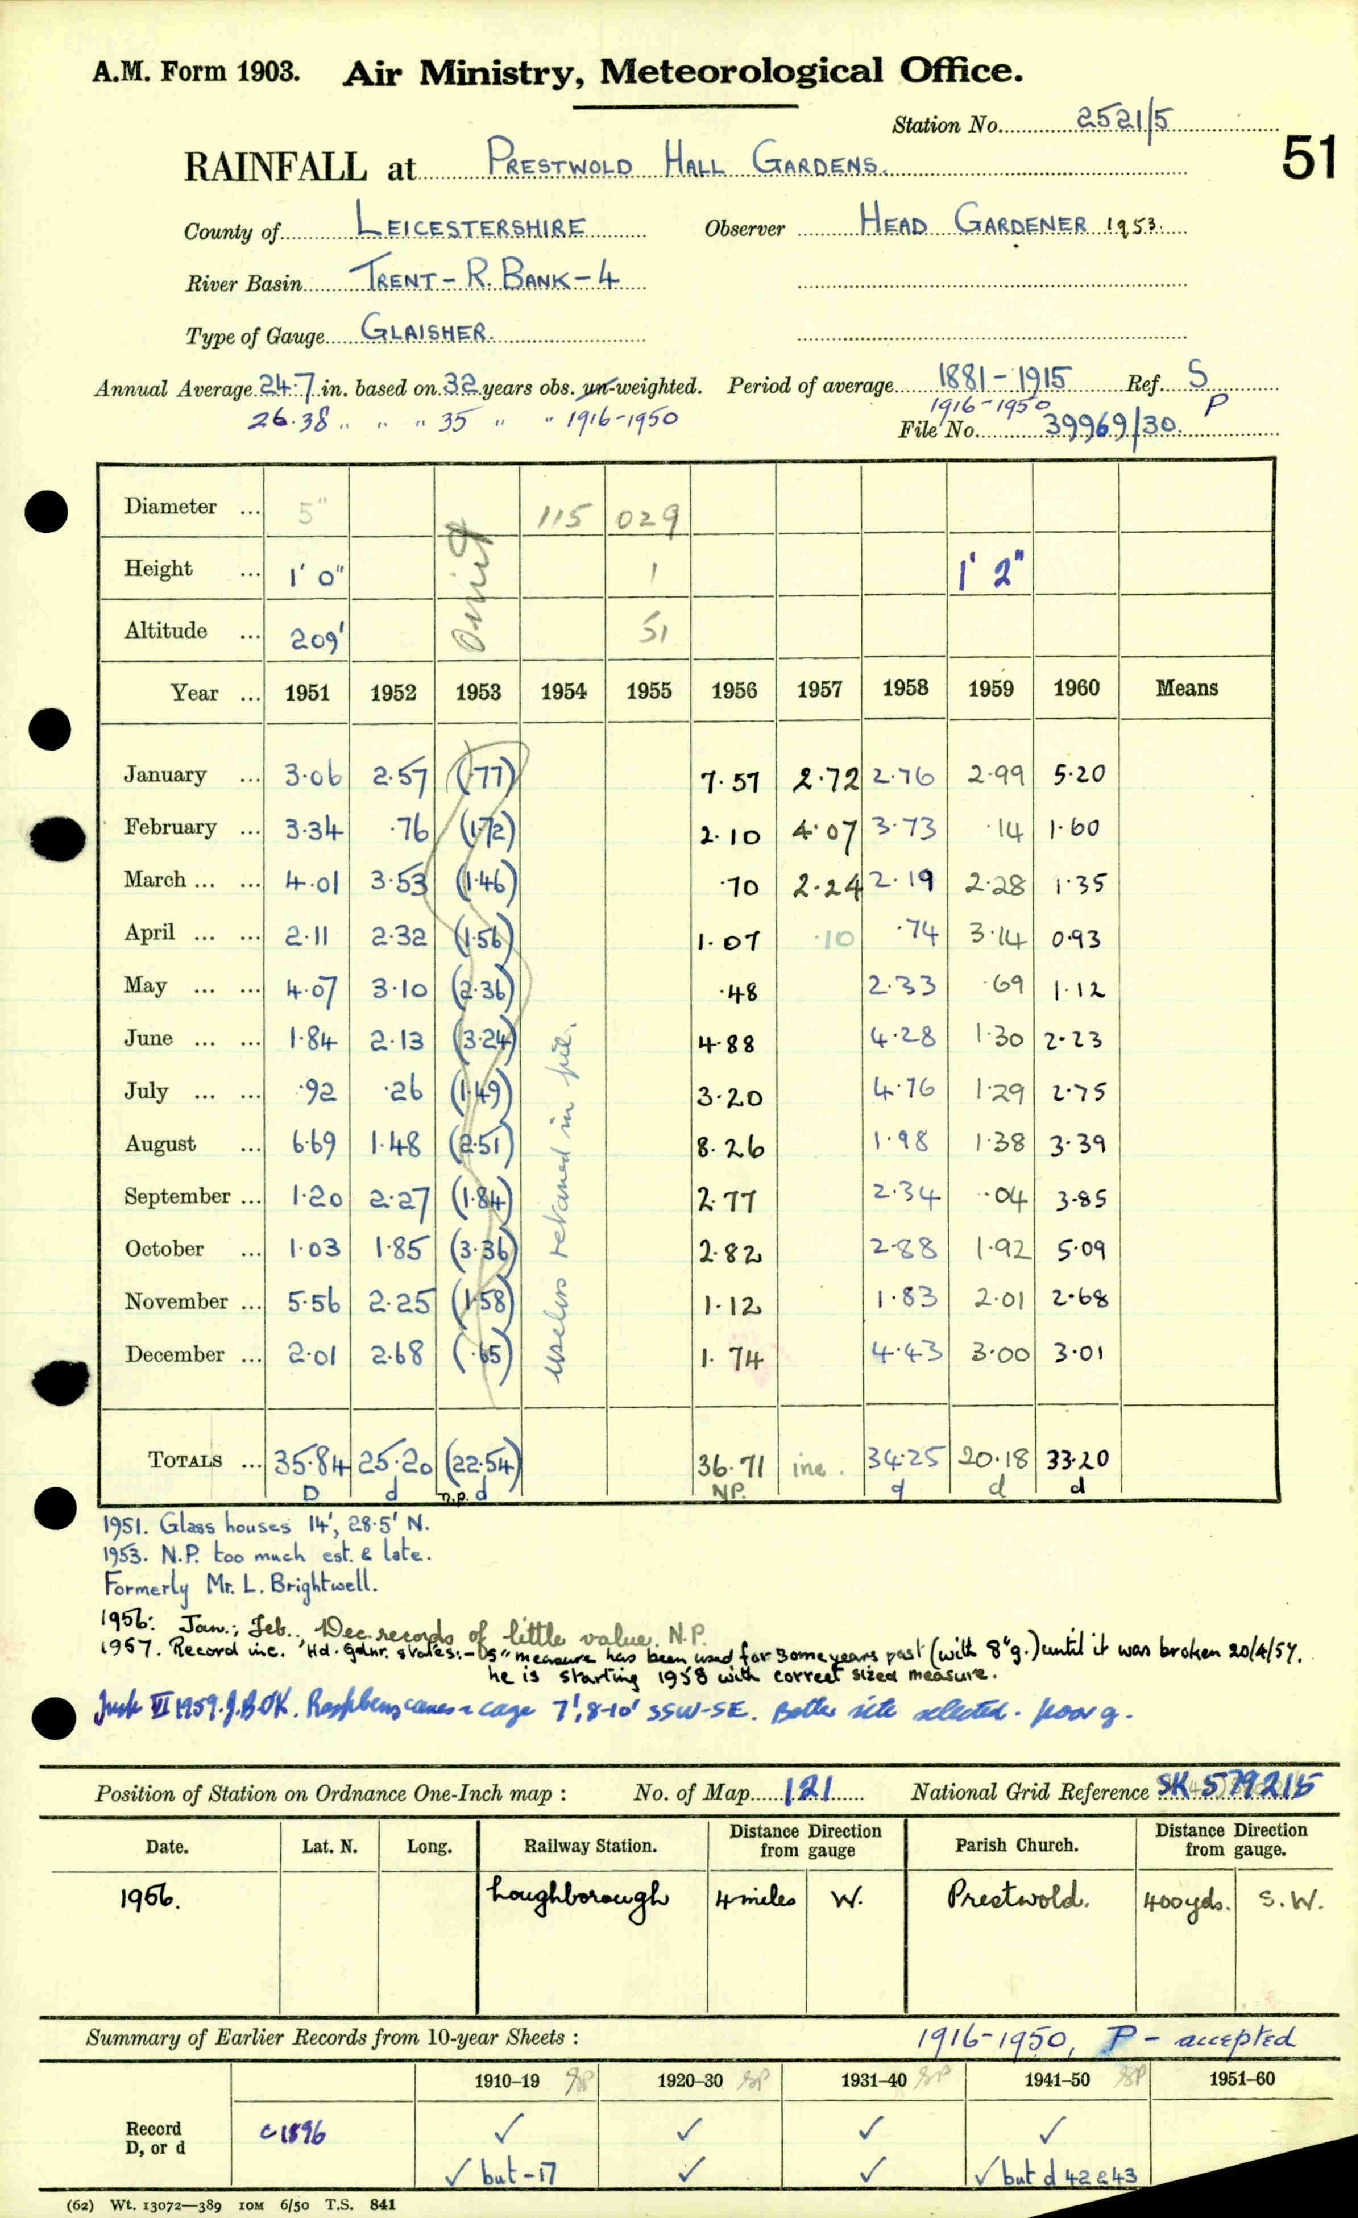 A.M. Form 1903. Air Ministry, Meteorological Office.
Station No. 2521/5
51
RAINFALL at PRESTWOLD HALL GARDENS.
County of LEICESTERSHIRE Observer HEAD GARDENER 1953.
River Basin TRENT - R. BANK - 4
Type of Gauge GLAISHER.
Annual Average 24.7 in. based on 32 years obs. un-weighted. Period of average 1881-1915 Ref. S
26.38 " " " 35 " " 1916-1950 1916-1950 P
File No. 39969/30.
Diameter ... 5" 115 029
Height ... 1' 0" 1 1' 2"
Altitude ... 209' 51
omit
Year ... 1951 1952 1953 1954 1955 1956 1957 1958 1959 1960 Means
January ... 3.06 2.57 (.77) 7.57 2.72 2.76 2.99 5.20
February ... 3.34 .76 (1.72) 2.10 4.07 3.73 .14 1.60
March ... ... 4.01 3.53 (1.46) .70 2.24 2.19 2.28 1.35
April ... ... 2.11 2.32 (1.56) 1.07 .10 .74 3.14 0.93
May ... ... 4.07 3.10 (2.36) .48 2.33 .69 1.12
June ... ... 1.84 2.13 (3.24) 4.88 4.28 1.30 2.23
July ... ... .92 .26 (1.49) 3.20 4.76 1.29 2.75
August ... 6.69 1.48 (2.51) 8.26 1.98 1.38 3.39
September ... 1.20 2.27 (1.84) 2.77 2.34 .04 3.85
October ... 1.03 1.85 (3.36) 2.82 2.88 1.92 5.09
November ... 5.56 2.25 (1.58) 1.12 1.83 2.01 2.68
December ... 2.01 2.68 (.65) 1.74 4.43 3.00 3.01
useless retained in file.
TOTALS ... 35.84 25.20 (22.54) 36.71 inc. 34.25 20.18 33.20
D d n.p. d NP. d d d
1951. Glass houses 14', 28.5' N.
1953. N.P. too much est. & late.
Formerly Mr. L. Brightwell.
1956: Jan., Feb., Dec records of little value. N.P.
1957. Record inc. 'Hd. Gdnr. states:- "5" measure has been used for some years past (with 8" g.) until it was broken 20/4/57.
he is starting 1958 with correct sized measure.
VI 1959. canes & cage 7', 8-10' SSW-SE. Better site selected. poor g.
Position of Station on Ordnance One-Inch map : No. of Map 121 National Grid Reference SK 579215
Date. Lat. N. Long. Railway Station. Distance Direction from gauge Parish Church. Distance Direction from gauge.
1956. Loughborough 4 miles W. Prestwold. 400 yds. S.W.
Summary of Earlier Records from 10-year Sheets : 1916-1950, P - accepted
1910–19 SP 1920–30 SP 1931–40 SP 1941–50 SP 1951–60
Record D, or d c1896 ✓ ✓ ✓ ✓
✓ but -17 ✓ ✓ ✓ but d 42 & 43
(62) Wt. 13072—389 10M 6/50 T.S. 841